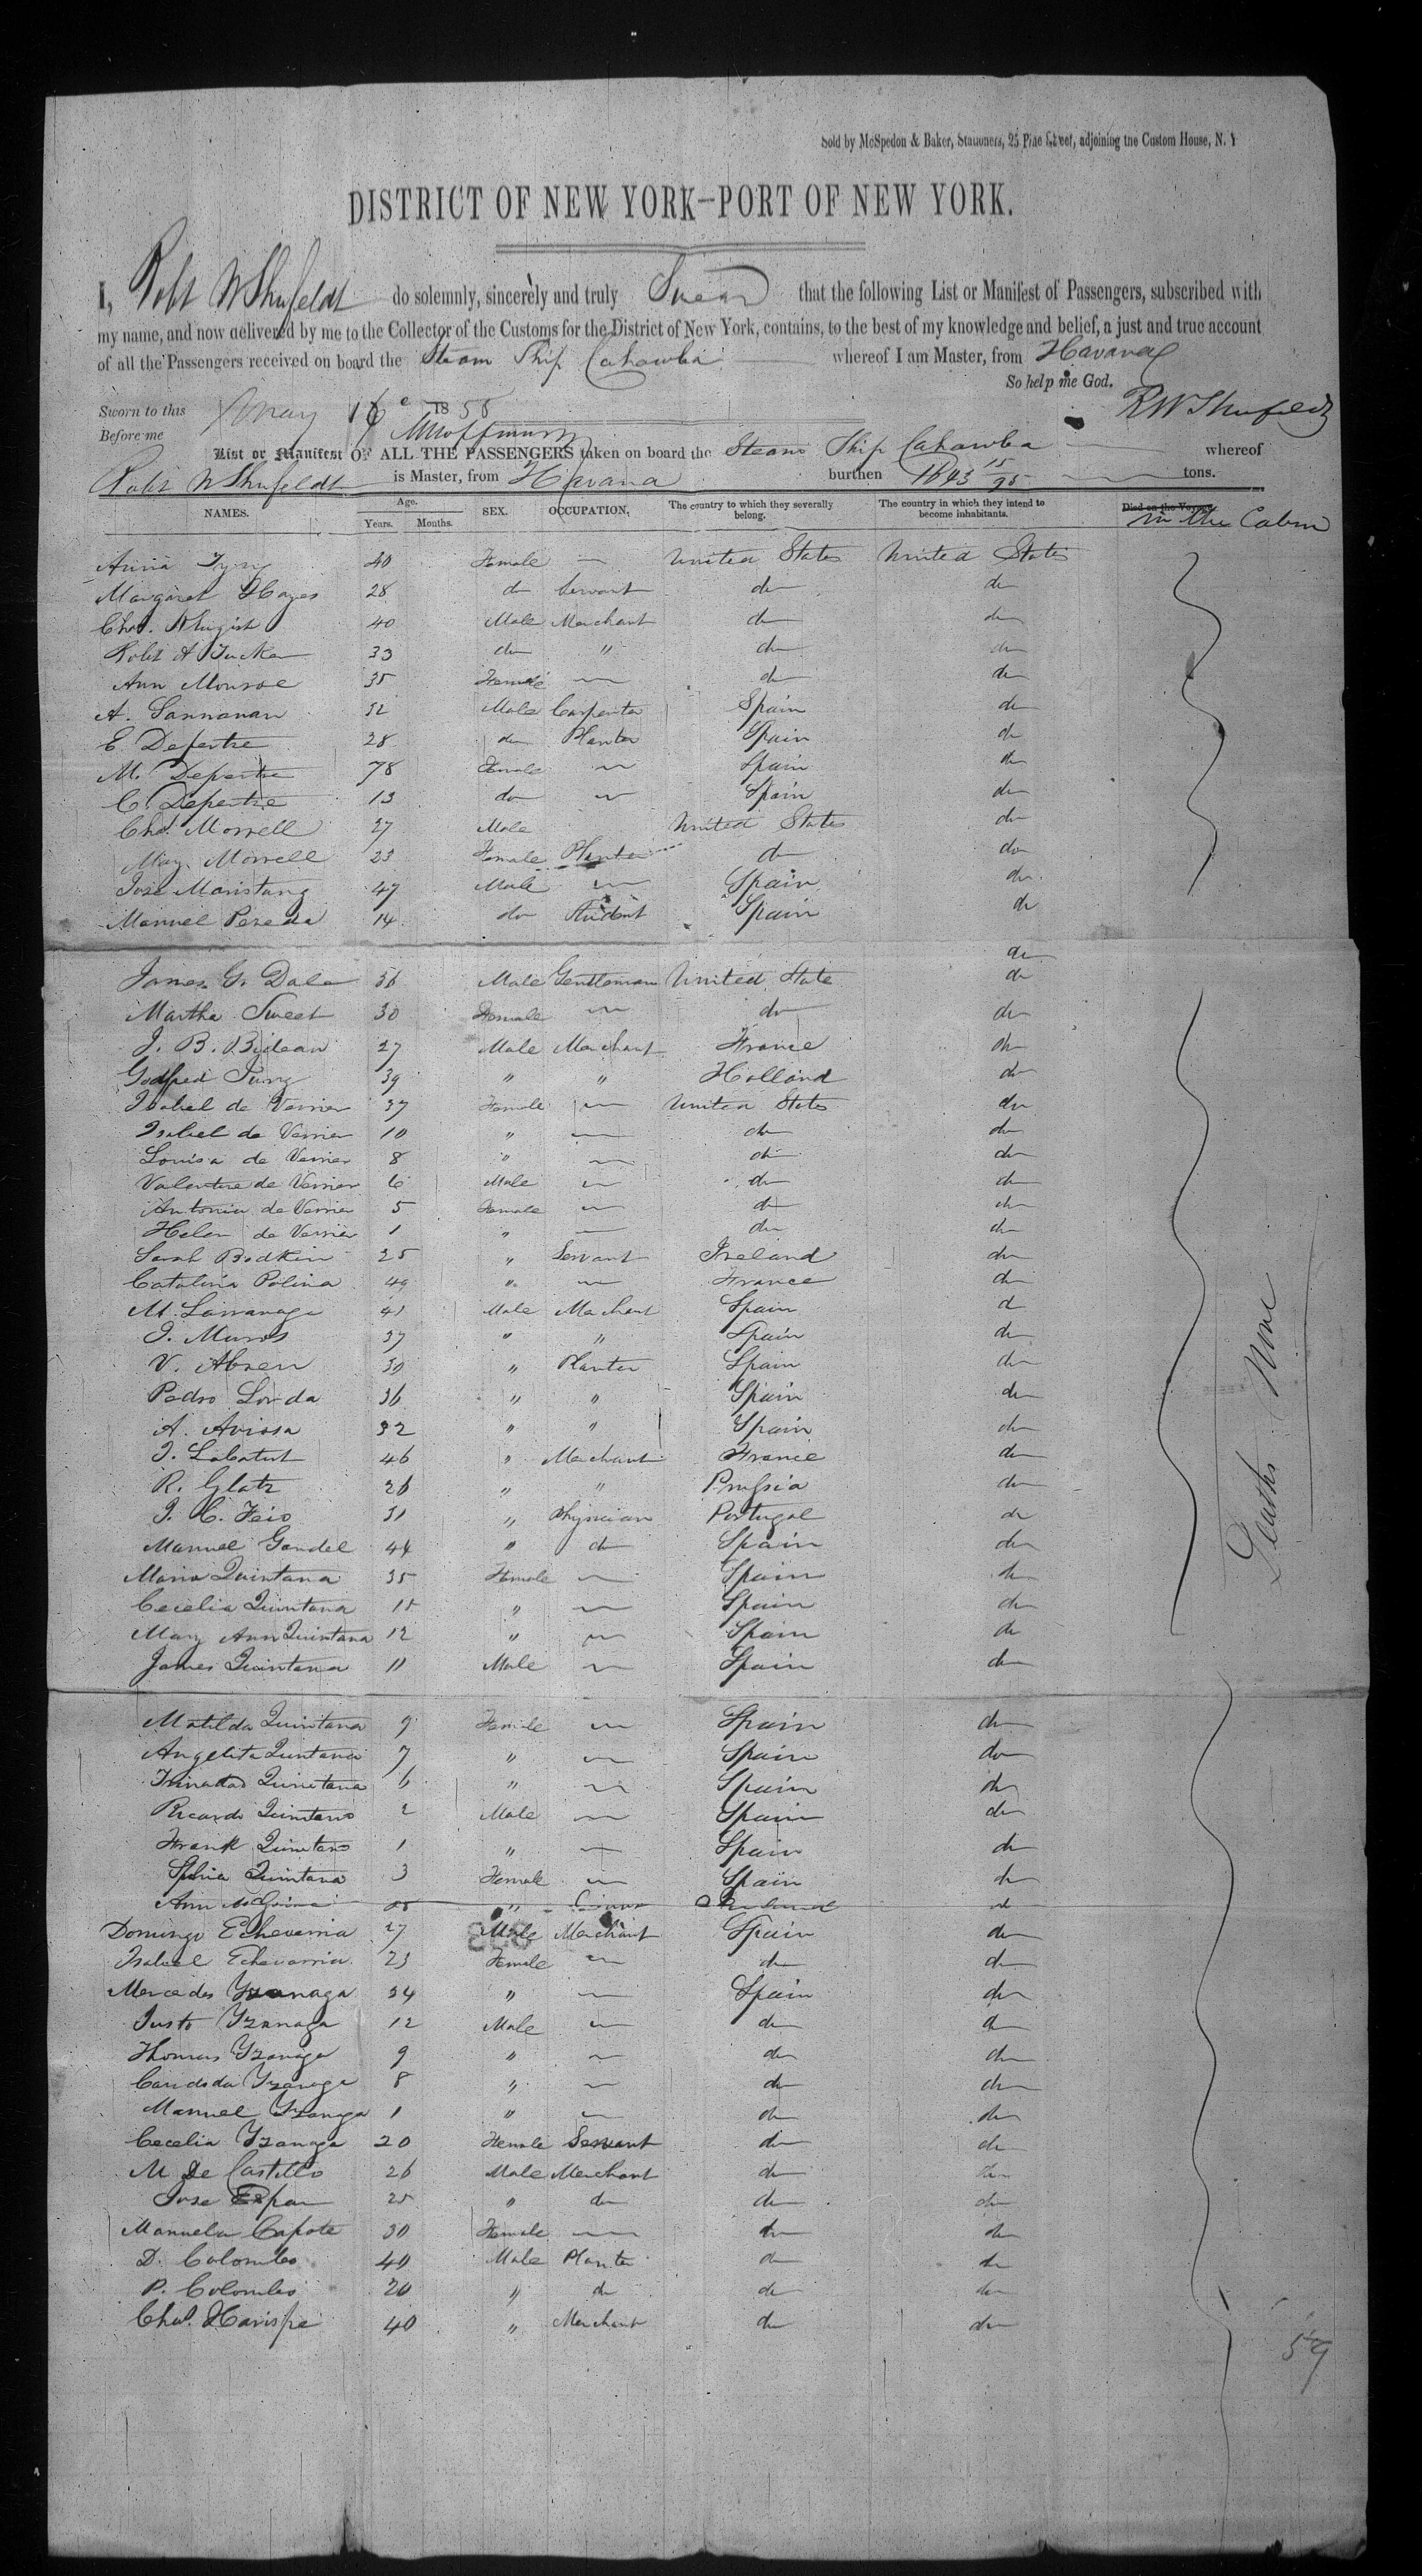 Sold by McSpedon & Baker, Stationers, 25 Pine Street, adjoining the Custom House, N. Y
DISTRICT OF NEW YORK—PORT OF NEW YORK.
I, Robt W Shufeldt do solemnly, sincerely and truly Swear that the following List or Manifest of Passengers, subscribed with
my name, and now delivered by me to the Collector of the Customs for the District of New York, contains, to the best of my knowledge and belief, a just and true account
of all the Passengers received on board the Steam Ship Cahawba whereof I am Master, from Havana
So help me God.
Sworn to this May 16 1855 RW Shufeldt
Before me
List or Manifest OF ALL THE PASSENGERS taken on board the Steam Ship Cahawba whereof
Robt W Shufeldt is Master, from Havana burthen 1643 15/95 tons.
NAMES. Age. Years. Months. SEX. OCCUPATION. The country to which they severally belong. The country in which they intend to become inhabitants. Died on the Voyage
in the Cabin
Anna Tyng 40 Female — United States United States
Margaret Hayes 28 do Servant do do
Chas. 40 Male Merchant do do
Robt A Tucker 33 do " do do
Ann Monroe 35 Female — do do
A. 32 Male Carpenter Spain do
E. Depestre 28 do Planter Spain do
M. Depestre 78 Female — Spain do
C. Depestre 13 do — Spain do
Chs. Morrell 27 Male United States do
May Morrell 23 Female Planter do do
Jose Maristany 47 Male — Spain do
Manuel Pereda 14 do Student Spain do
do
James G. Dale 36 Male Gentleman United State do
Martha Sweet 30 Female — do do
J. B. 27 Male Merchant France do
Godfred Jung 39 " " Holland do
Isabel de Verrier 37 Female — United States do
Isabel de Verrier 10 " — do do
Louisa de Verrier 8 " — do do
Valentine de Verrier 6 Male — do do
Antonia de Verrier 5 Female — do do
Helen de Verrier 1 " — do do
Sarah Bodkin 25 " Servant Ireland do
Catalina Polina 49 " — France do
M. Larranaga 41 Male Merchant Spain do
J. Muros 37 " " Spain do
V. Abreu 30 " Planter Spain do
Pedro Lorda 36 " " Spain do
A. Avissa 32 " " Spain do
J. Labatut 46 " Merchant France do
R. Glatz 26 " " Prussia do
J. C. Feio 31 " Physician Portugal do
Manuel Gandel 44 " do Spain do
Maria Quintana 35 Female — Spain do
Cecelia Quintana 15 " — Spain do
Mary Ann Quintana 12 " — Spain do
James Quintana 11 Male — Spain do
Deaths None
Matilda Quintana 9 Female — Spain do
Angelita Quintana 7 " — Spain do
Trinadad Quintana 6 " — Spain do
Ricardo Quintana 2 Male — Spain do
Frank Quintano 1 " — Spain do
Sphia Quintana 3 Female — Spain do
Ann "
Domingo Echeverria 27 Male Merchant Spain do
Isabel Echevarria 23 Female — do do
Mercedes Yzanaga 34 " — Spain do
Justo Yzanaga 12 Male — do do
Thomas Yzanaga 9 " — do do
Candida Yzanaga 8 " — do do
Manuel Yzanaga 1 " — do do
Cecelia Yzanaga 20 Female Servant do do
M De Castillo 26 Male Merchant do do
Jose 25 " do do do
Manuela Capote 30 Female — do do
D. Colombo 40 Male Planter do do
P. Colombo 20 " do do do
Chas. Harispe 40 " Merchant do do
59